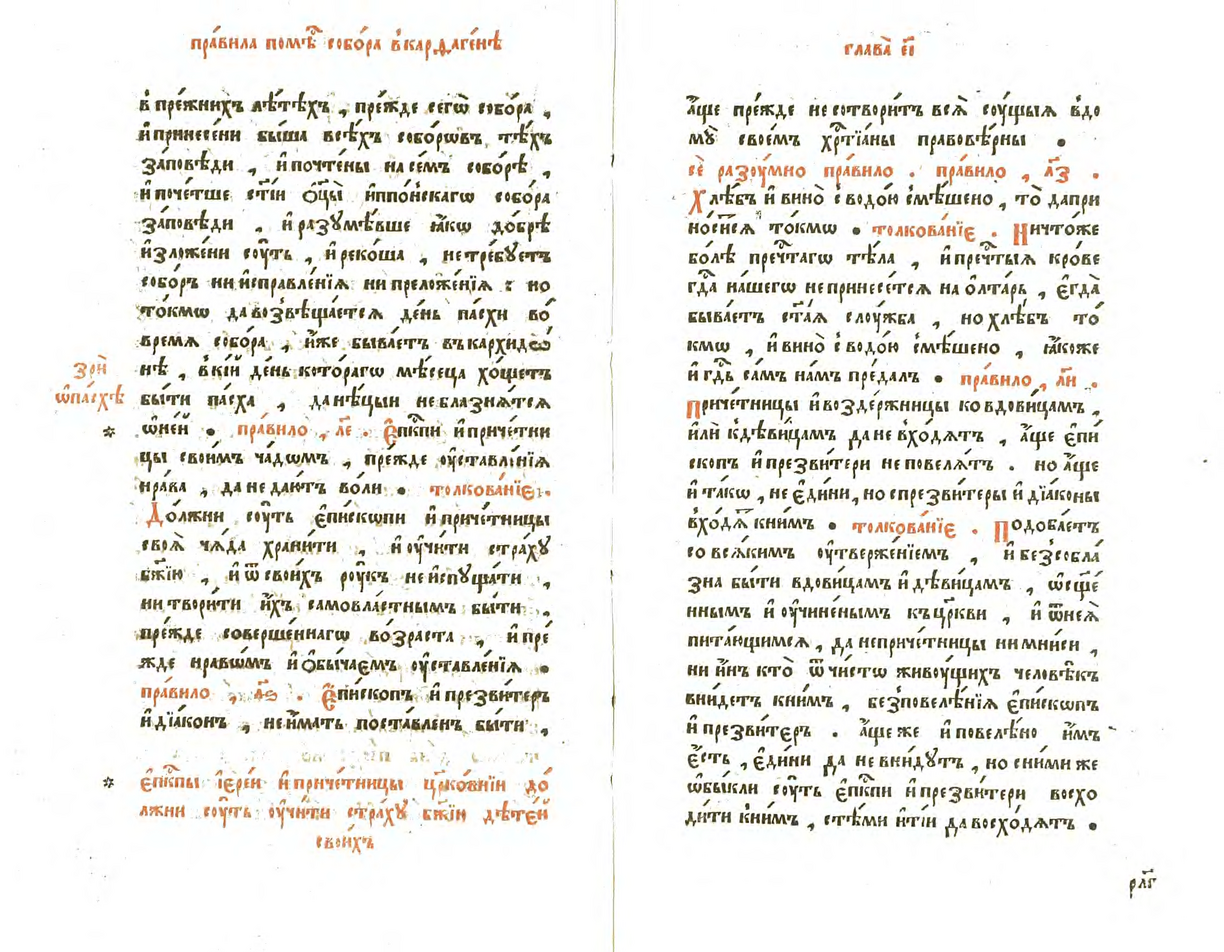 пра́вила пома́ѣⷭ҇ собо́ра в̾карѳаге́нѣ
в̾ пре́жнихъ лѣ́тѣхъ , пре́жде сегѡ̀ собо́ра ,
и҆ принесе́ни бы́ша всѣ́хъ собо́рѡвъ тѣ́хъ
за́повѣди , и҆ почте́ны на се́мъ собо́рѣ ,
и҆ поче́тше ст҃і́и ѻ҆ц҃ы̀ и҆ппо́нскагѡ собо́ра
за́повѣди , и҆ разꙋмѣ́вше ꙗ҆́кѡ до́брѣ
и҆зло́жени сꙋ́ть , и҆ реко́ша , не тре́бꙋетъ
собо́ръ ни и҆справле́нїѧ ни преложе́нїѧ : но
то́кмѡ да возвѣща́етсѧ де́нь па́схи во́
времѧ собо́ра , и҆́же быва́етъ въ кархидѡ́
нѣ , в̾ кі́й де́нь кото́рагѡ мѣ́сеца хо́щетъ
бы́ти па́сха , да нѣ́цыи не блазнѧ́тсѧ
ѡ҆ не́й . пра́вило , л҃е . Е҆пⷭ҇кпи и҆ приче́тни
цы свои́мъ ча́дѡмъ , пре́жде оу҆ставле́нїѧ
нра́ва , да не даю́тъ во́ли . толкова́нїе .
До́лжни сꙋ́ть є҆пи́скѡпи и҆ приче́тницы
своѧ̀ ча́да храни́ти , и҆ оу҆чи́ти стра́хꙋ
бж҃їю , и҆ ѿ свои́хъ рꙋ́къ не и҆спꙋща́ти ,
ни твори́ти и҆́хъ самовла́стнымъ бы́ти ,
пре́жде соверше́ннагѡ во́зраста , и҆ пре́
жде нра́вѡмъ и҆ ѻ҆бы́чаемъ оу҆ставле́нїѧ .
пра́вило , л҃ѕ . Е҆пи́скопъ и҆ презви́теръ
и҆ дїа́конъ , не и҆́мать поста́вленъ бы́ти ,
зрѝ
ѡ҆ па́схѣ
*
* є҆пⷭ҇кпы і҆ере́и и҆ приче́тницы цр҃ко́внїи до́
лжни сꙋ́ть оу҆чи́ти стра́хꙋ бж҃їю дѣте́й
свои́хъ
глава̀ е҃і
а҆́ще пре́жде не сотвори́тъ всѧ̀ сꙋ́щыѧ в̾до
мꙋ̀ свое́мъ хрⷭ҇тїа́ны правовѣ́рны .
сѐ разꙋ́мно пра́вило . пра́вило , л҃з .
Хлѣ́бъ и҆ вино̀ с̾ водо́ю смѣ́шено , то̀ да при
но́ситсѧ то́кмѡ . толкова́нїе . Ничто́же
бо́лѣ пречⷭ҇тагѡ тѣ́ла , и҆ пречⷭ҇тыѧ кро́ве
гдⷭ҇а на́шегѡ не принесе́тсѧ на ѻ҆лта́рь , є҆гда̀
быва́етъ ст҃а́ѧ слꙋ́жба , но хлѣ́бъ то́
кмѡ , и҆ вино̀ с̾ водо́ю смѣ́шено , ꙗ҆́коже
и҆ гдⷭ҇ь са́мъ на́мъ пре́далъ . пра́вило , л҃и .
Приче́тницы и҆ возде́ржницы ко вдови́цамъ ,
и҆лѝ к̾ дѣви́цамъ да не в̾хо́дѧтъ , а҆́ще є҆пи́
скопъ и҆ презви́тери не повелѧ́тъ . но а҆́ще
и҆ та́кѡ , не є҆ди́ни , но с презви́теры и҆ дїа́коны
в̾хо́дѧⷮ к ни́мъ . толкова́нїе . Подоба́етъ
со всѧ́кимъ оу҆твержє́нїемъ , и҆ без̾собла́
зна бы́ти вдови́цамъ и҆ дѣви́цамъ , ѡ҆сщ҃е́
ннымъ и҆ оу҆чине́нымъ къ цр҃кви , и҆ ѿ неѧ̀
пита́ющимсѧ , да ни приче́тницы ни мни́си ,
ни и҆́нъ кто̀ ѿ чи́стѡ живꙋ́щихъ человѣ́къ
вни́детъ к ни́мъ , без̾ повелѣ́нїѧ є҆пи́скѡпъ
и҆ презви́теръ . а҆́ще же и҆ повелѣ́но и҆́мъ
є҆́сть , є҆ди́ни да не вни́дꙋтъ , но с ни́ми же
ѡ҆бы́кли сꙋ́ть є҆пⷭ҇кпи и҆ презви́тери восхо
ди́ти к ни́мъ , с тѣ́ми и҆ ті́и да восхо́дѧтъ .
рл҃г